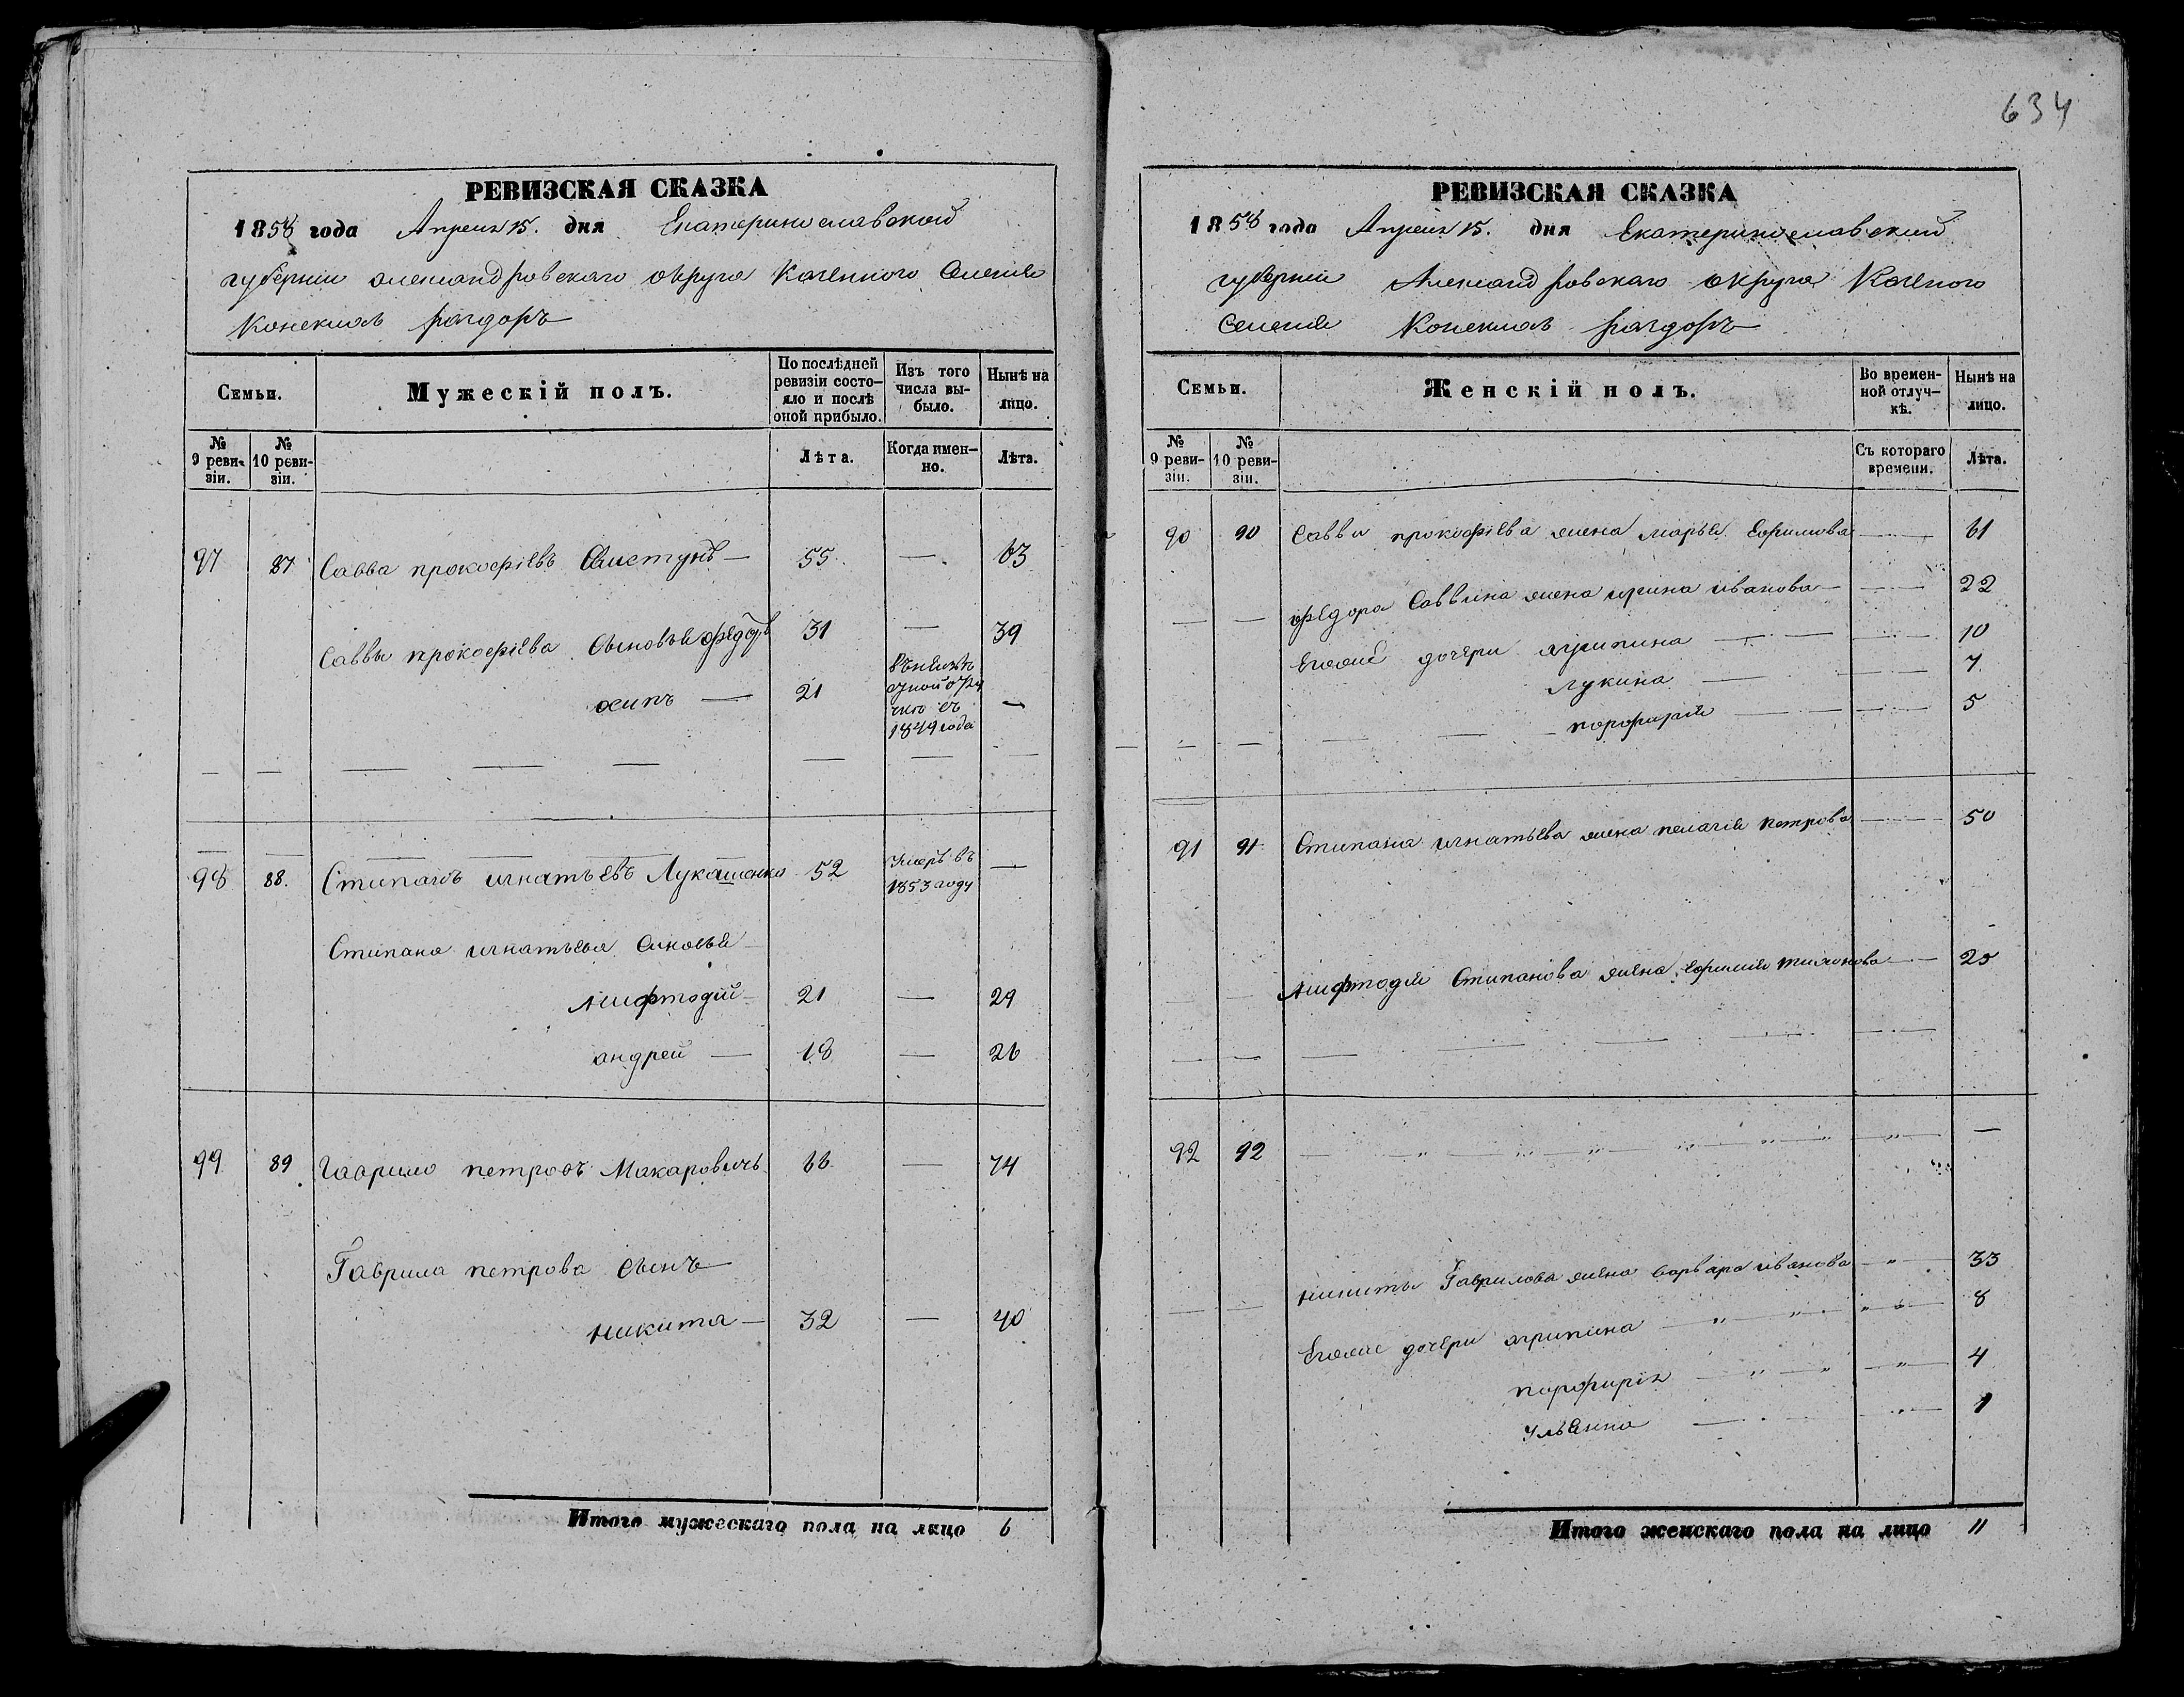 РЕВИЗСКАЯ СКАЗКА
1858 года Апреля 15. дня Екатеринославской
губернии александровскаго округа Казенного Селения
Конскихъ раздоръ
Семьи.
Мужескій полъ.
По послѣдней ревизіи состо-яло и послѣ оной прибыло.
Изъ того числа вы-было.
Нынѣ на лицо.
№ 9 реви-зіи.
№ 10 реви-зіи.
Лѣта.
Когда имен-но.
Лѣта.
97 87 Савва прокофіевъ Свистунъ — 55 — 63
Саввы прокофіева Сыновья федоръ 31 — 39
осипъ — 21 —
1849 года
98 88. Стипанъ игнатьевъ Лукашенко 52 Умеръ въ 1853 году —
Стипана игнатьева Синовья
Мифтодій 21 — 29
андрей — 18 — 26
99 89 Гаврило петровъ Макаровичъ 66 — 74
Гаврила петрова сынъ
никита — 32 — 40
Итого мужескаго пола на лицо 6
634
РЕВИЗСКАЯ СКАЗКА
1858 года Апреля 15. дня Екатеринославский
губернии Александровскаго округа Казеного
Селения Конскихъ раздоръ
Семьи.
Женскій полъ.
Во времен-ной отлуч-кѣ.
Нынѣ на лицо.
№ 9 реви-зіи.
№ 10 реви-зіи.
Съ котораго времени.
Лѣта.
90 90 Саввы прокофіева жена марья Ефимова — 61
федора Саввина жена ирина иванова — 22
Егоже дочери агрипина — 10
Лукина — 7
порфирія — 5
91 91 Стипана игнатьева жена пелагия петрова — 50
Мифтодія Стипанова жена ефимия — 25
92 92 —
никиты Гаврилова жена варвара иванова — 33
Егоже дочери агрипина — 8
порфирія — 4
ульянна — 1
Итого женскаго пола на лицо 11